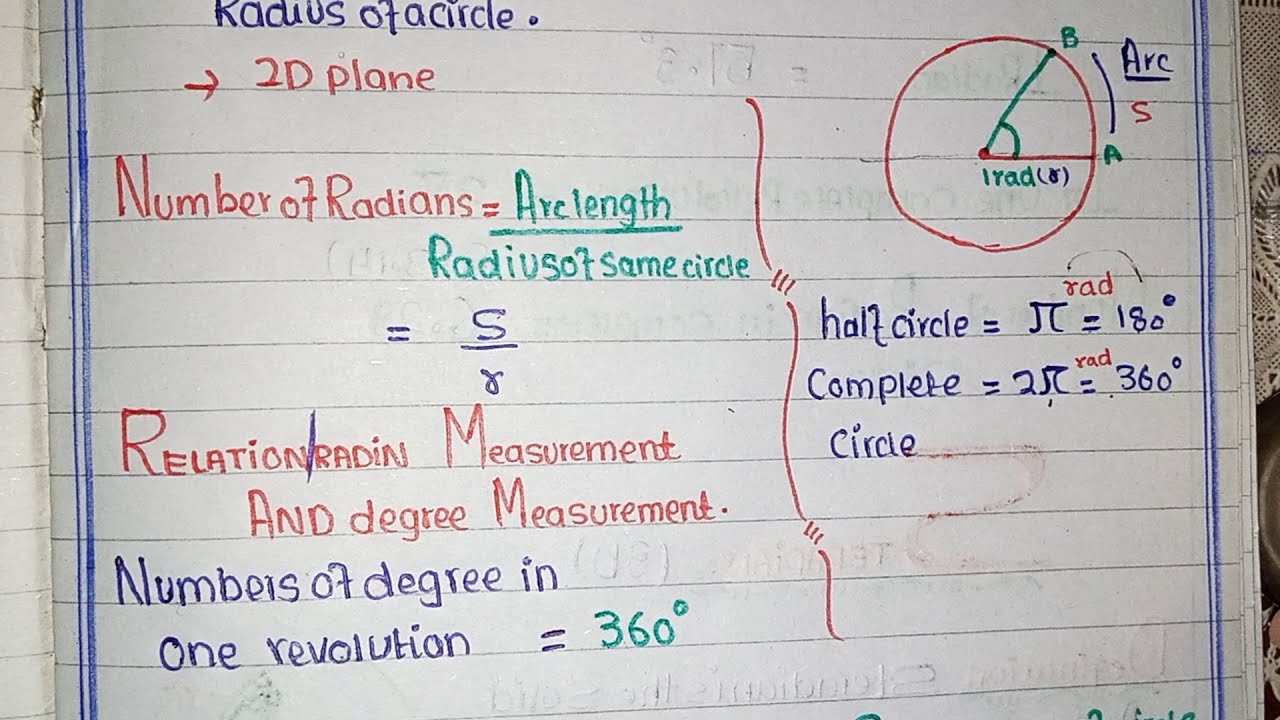 Radius of a circle.
→ 2D plane
Number of Radians = Arc length
Radius of same circle
= S
r
RELATION/RADIN Measurement
AND degree Measurement.
Numbers of degree in
one revolution = 360°
B
Arc
S
A
1rad(r)
half circle = π rad = 180°
Complete = 2π rad = 360°
Circle